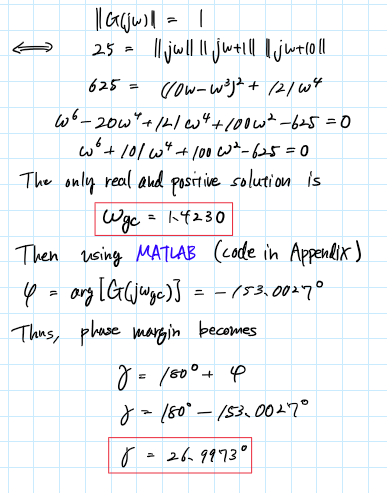 ||G(jω)|| = 1
⟺ 25 = ||jω|| ||jω+1|| ||jω+10||
625 = (10ω-ω³)² + 121ω⁴
ω⁶-20ω⁴+121ω⁴+100ω²-625=0
ω⁶+101ω⁴+100ω²-625=0
The only real and positive solution is
ωgc = 1.4230
Then using MATLAB (code in Appendix)
φ = arg[G(jωgc)] = -153.0027°
Thus, phase margin becomes
γ = 180° + φ
γ = 180° - 153.0027°
γ = 26.9973°